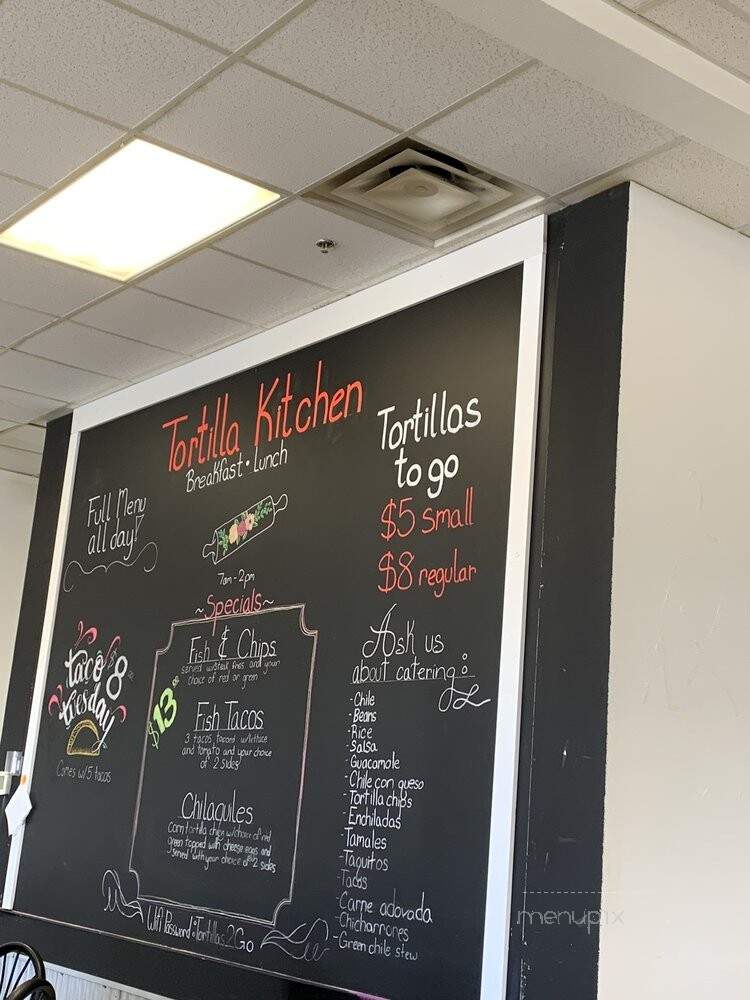 Tortilla Kitchen
Breakfast • Lunch
Full Menu
all day!
7am-2pm
Tortillas
to go
$5 small
$8 regular
~Specials~
Fish & Chips
served w/steak fries and your
choice of red or green
$13
Fish Tacos
3 tacos topped w/lettuce
and tomato and your choice
of 2 sides
Chilaquiles
Corn tortilla chips w/choice of red
green topped with cheese eggs and
served with your choice of 2 sides
taco
tuesday
8
Comes w/5 tacos
Ask us
about catering:
-Chile
-Beans
-Rice
-Salsa
-Guacamole
-Chile con queso
-Tortilla chips
-Enchiladas
-Tamales
-Taquitos
-Tacos
-Carne adovada
-Chicharrones
-Green chile stew
Wifi Password: Tortillas2Go
menupix